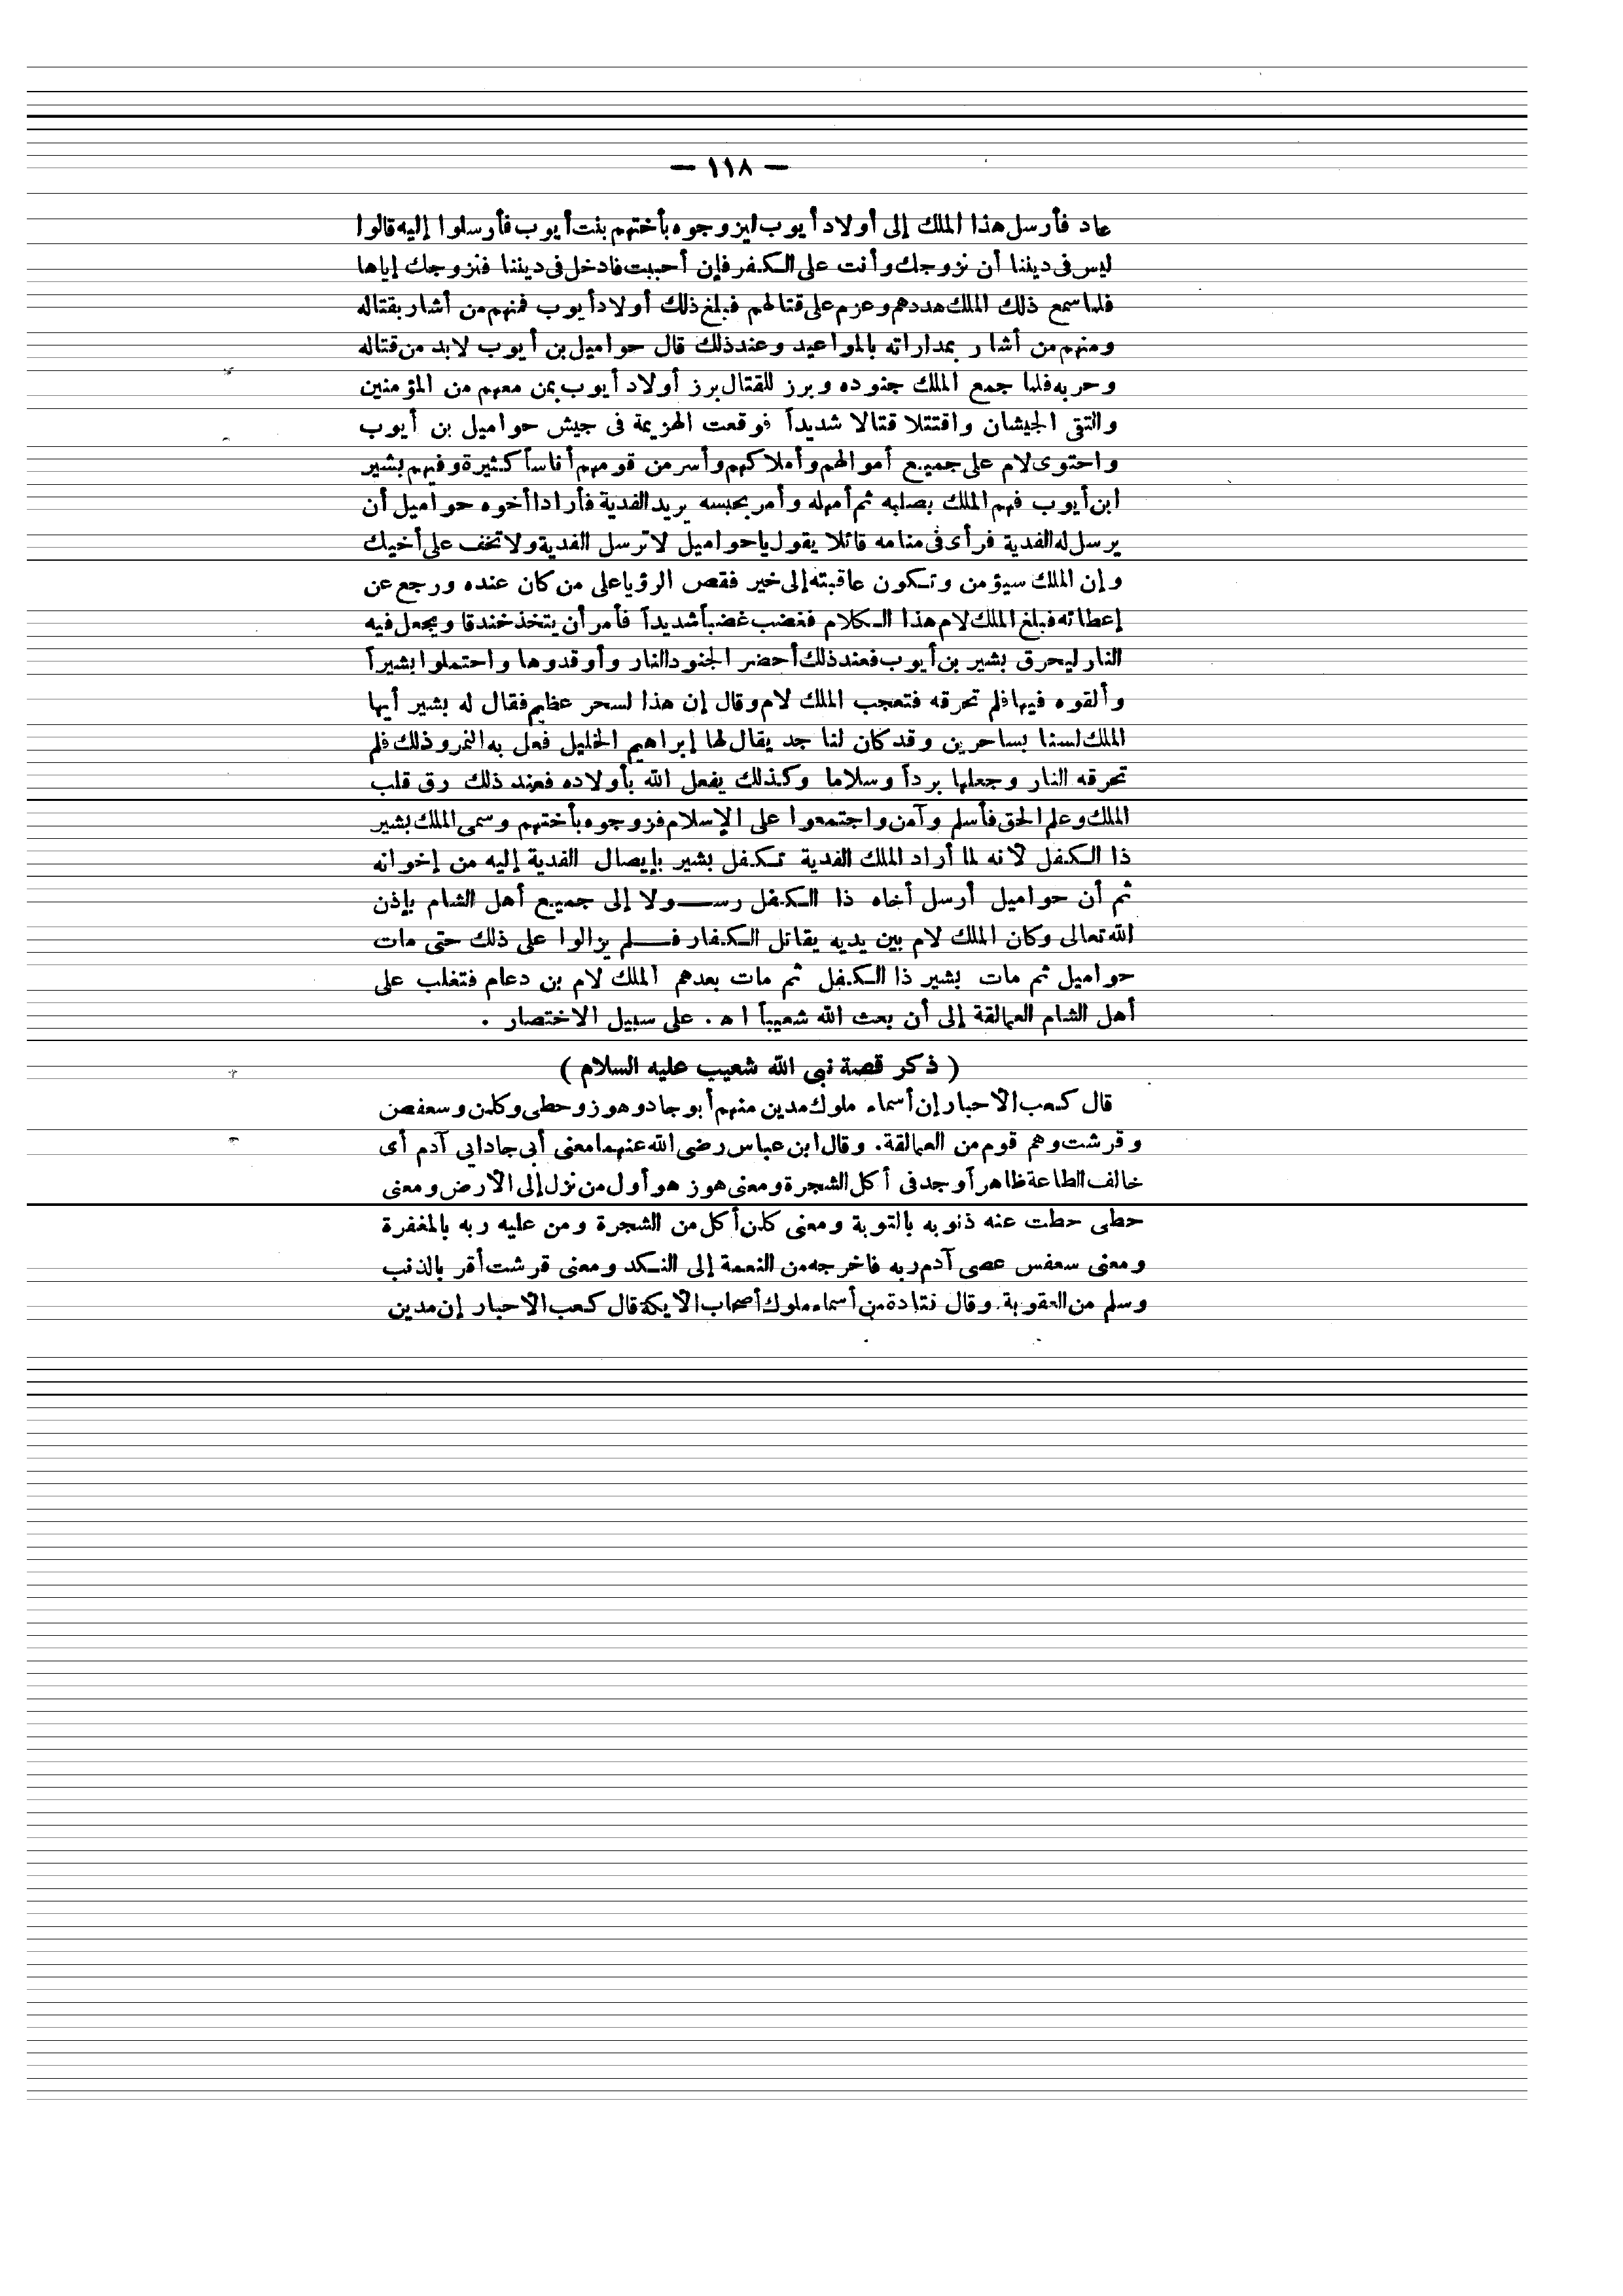 — ١١٨ —
عاد فأرسل هذا الملك إلى أولاد أيوب ليزوجوه بأختهم بنت أيوب فأرسلوا إليه قالوا
ليس فى ديننا أن نزوجك وأنت على الكفر فإن أحببت فادخل فى ديننا فنزوجك إياها
فلما سمع ذلك الملك هددهم وعزم على قتالهم فبلغ ذلك أولاد أيوب فمنهم من أشار بقتاله
ومنهم من أشار بمداراته بالمواعيد وعند ذلك قال حواميل بن أيوب لابد من قتاله
وحربه فلما جمع الملك جنوده وبرز للقتال برز أولاد أيوب بمن معهم من المؤمنين
والتقى الجيشان واقتتلا قتالا شديداً فوقعت الهزيمة فى جيش حواميل بن أيوب
واحتوى لام على جميع أموالهم وأملاكهم وأسر من قومهم أفاساً كثيرة وفيهم بشير
ابن أيوب فهم الملك بصلبه ثم أمهله وأمر بحبسه يريد الفدية فأراد اأخوه حواميل أن
يرسل له الفدية فرأى فى منامه قائلا يقول ياحواميل لا ترسل الفدية ولا تخف على أخيك
وإن الملك سيؤمن وتكون عاقبته إلى خير فقص الرؤيا على من كان عنده ورجع عن
إعطائه فبلغ الملك لام هذا الكلام فغضب غضباً شديداً فأمر أن يتخذ خندقا ويجعل فيه
النار ليحرق بشير بن أيوب فعند ذلك أحضر الجنود النار وأوقدوها واحتملوا بشيراً
وألقوه فيها فلم تحرقه فتعجب الملك لام وقال إن هذا لسحر عظيم فقال له بشير أيها
الملك لسنا بساحرين وقد كان لنا جد يقال لها إبراهيم الخليل فعل به النمروذ ذلك فلم
تحرقه النار وجعلها برداً وسلاما وكذلك يفعل الله بأولاده فعند ذلك رق قلب
الملك وعلم الحق فأسلم وآمن واجتمعوا على الإسلام فزوجوه بأختهم وسمى الملك بشير
ذا الكفل لأنه لما أراد الملك الفدية تكفل بشير بإيصال الفدية إليه من إخوانه
ثم أن حواميل أرسل أخاه ذا الكفل رسولا إلى جميع أهل الشام بإذن
الله تعالى وكان الملك لام بين يديه يقاتل الكفار فلم يزالوا على ذلك حتى مات
حواميل ثم مات بشير ذا الكفل ثم مات بعدهم الملك لام بن دعام فتغلب على
أهل الشام العمالقة إلى أن بعث الله شعيباً اه . على سبيل الاختصار .
( ذكر قصة نبى الله شعيب عليه السلام )
قال كعب الأحبار إن أسماء ملوك مدين منهم أبوجاد وهوز وحطى وكلمن وسعفص
وقرشت وهم قوم من العمالقة. وقال ابن عباس رضى الله عنهما معنى أبى جاد ابى آدم أى
خالف الطاعة ظاهر أوجد فى أكل الشجرة ومعنى هوز هو أول من نزل إلى الأرض ومعنى
حطى حطت عنه ذنوبه بالتوبة ومعنى كلمن أكل من الشجرة ومن عليه ربه بالمغفرة
ومعنى سعفس عصى آدم ربه فاخرجه من النعمة إلى النكد ومعنى قرشت أقر بالذنب
وسلم من العقوبة. وقال قتادة من أسماء ملوك أصحاب الأيكة قال كعب الأحبار إن مدين